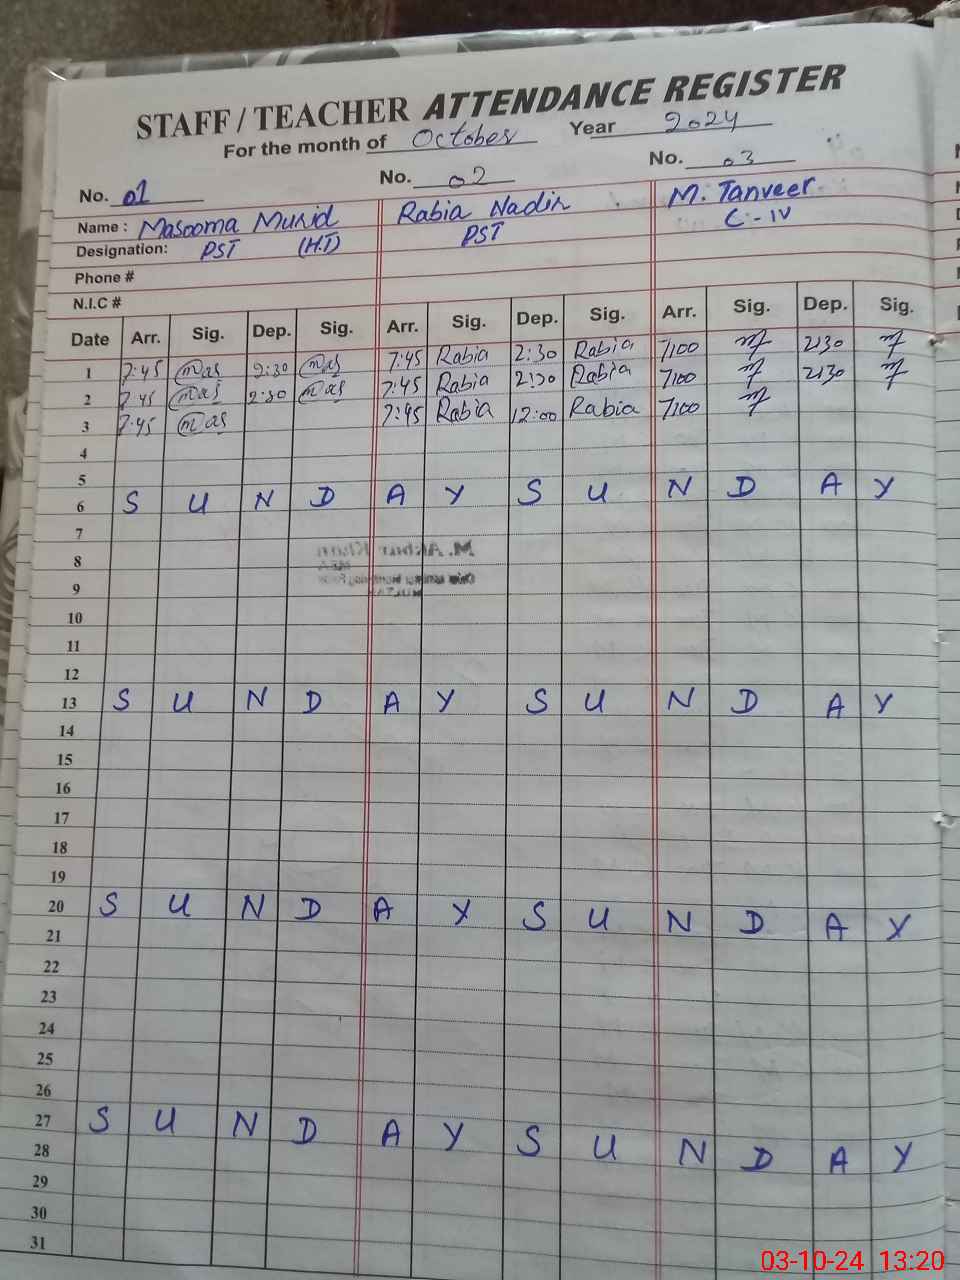 STAFF / TEACHER ATTENDANCE REGISTER
For the month of October Year 2024
No. 01 No. 02 No. 03
Name : Masooma Murid Rabia Nadir M. Tanveer
Designation: PST (H.T) PST C-IV
Phone #
N.I.C #
Date Arr. Sig. Dep. Sig. Arr. Sig. Dep. Sig. Arr. Sig. Dep. Sig.
1 7:45 mas 2:30 mas 7:45 Rabia 2:30 Rabia 7:00 2:30
2 7:45 mas 2:30 mas 7:45 Rabia 2:30 Rabia 7:00 2:30
3 7:45 mas 7:45 Rabia 12:00 Rabia 7:00
4
5
6 S U N D A Y S U N D A Y
7
8
9
10
11
12
13 S U N D A Y S U N D A Y
14
15
16
17
18
19
20 S U N D A Y S U N D A Y
21
22
23
24
25
26
27 S U N D A Y S U N D A Y
28
29
30
31
03-10-24 13:20